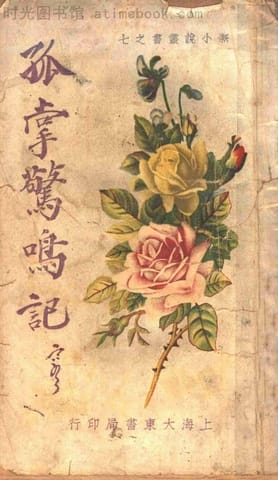 时光图书馆 - atimebook.com
新小說叢書之七
孤掌驚鳴記
上海大東書局印行